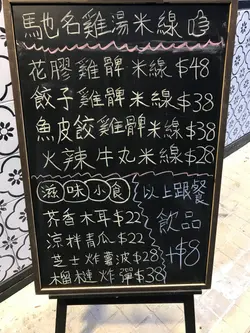 馳名雞湯米線
花膠雞髀米線$48
餃子雞髀米線$38
魚皮餃雞髀米線$38
火辣牛丸米線$28
滋味小食
芥香木耳$22
涼拌青瓜$22
芝士炸薯波$28
榴槤炸彈$38
以上跟餐
飲品
+$8